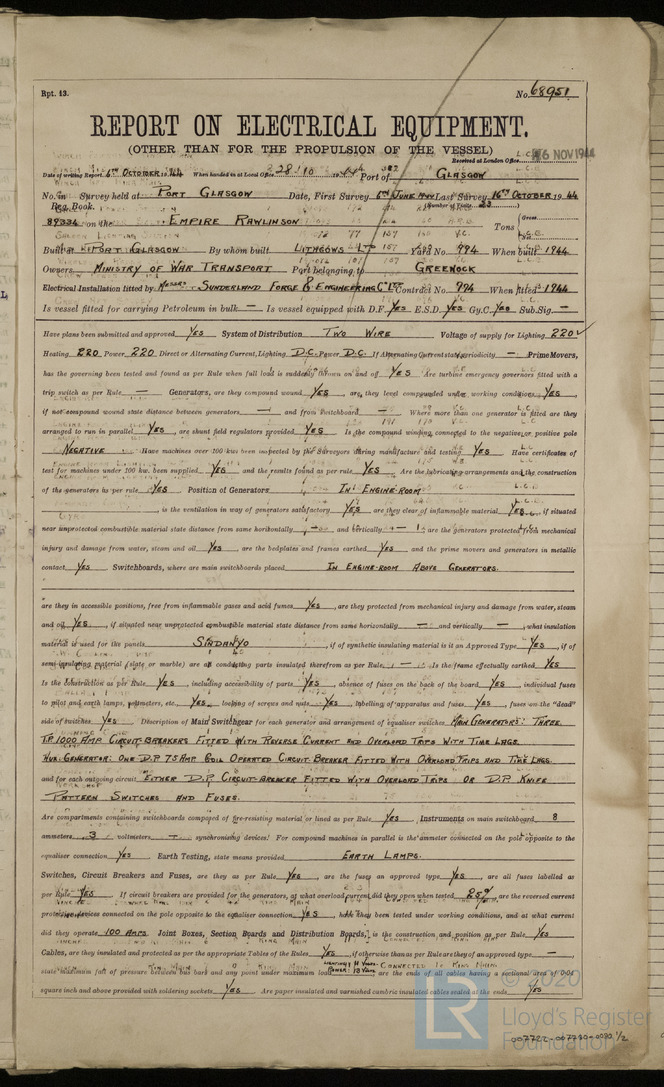 Rpt. 13.
No. 68951
REPORT ON ELECTRICAL EQUIPMENT.
(OTHER THAN FOR THE PROPULSION OF THE VESSEL)
Received at London Office 16 NOV 1944
Date of writing Report 6TH OCTOBER 1944 When handed in at Local Office 28/10 1944 Port of GLASGOW
No. in Survey held at PORT GLASGOW Date, First Survey JUNE Last Survey 16TH OCTOBER 1944
Reg. Book. (Number of Visits 23)
89334 on the EMPIRE RAWLINSON Tons Gross Net
Built at PORT GLASGOW By whom built LITHGOWS LTD Yard No. 994 When built 1944
Owners MINISTRY OF WAR TRANSPORT Port belonging to GREENOCK
Electrical Installation fitted by MESSRS SUNDERLAND FORGE & ENGINEERING Co LTD Contract No. 994 When fitted 1944
Is vessel fitted for carrying Petroleum in bulk — Is vessel equipped with D.F. YES E.S.D. YES Gy.C. YES Sub.Sig. —
Have plans been submitted and approved YES System of Distribution TWO WIRE Voltage of supply for Lighting 220
Heating 220 Power 220 Direct or Alternating Current, Lighting D.C. Power D.C. If Alternating Current state periodicity — Prime Movers,
has the governing been tested and found as per Rule when full load is suddenly thrown on and off YES Are turbine emergency governors fitted with a
trip switch as per Rule — Generators, are they compound wound YES, are they level compounded under working conditions YES,
if not compound wound state distance between generators — and from switchboard — Where more than one generator is fitted are they
arranged to run in parallel YES, are shunt field regulators provided YES Is the compound winding connected to the negative or positive pole
NEGATIVE Have machines over 100 kw. been inspected by the Surveyors during manufacture and testing YES Have certificates of
test for machines under 100 kw. been supplied YES and the results found as per rule YES Are the lubricating arrangements and the construction
of the generators as per rule YES Position of Generators IN ENGINE-ROOM
, is the ventilation in way of generators satisfactory YES are they clear of inflammable material YES, if situated
near unprotected combustible material state distance from same horizontally — and vertically —, are the generators protected from mechanical
injury and damage from water, steam and oil YES, are the bedplates and frames earthed YES and the prime movers and generators in metallic
contact YES Switchboards, where are main switchboards placed IN ENGINE-ROOM ABOVE GENERATORS.
are they in accessible positions, free from inflammable gases and acid fumes YES, are they protected from mechanical injury and damage from water, steam
and oil YES, if situated near unprotected combustible material state distance from same horizontally — and vertically —, what insulation
material is used for the panels SINDANYO, if of synthetic insulating material is it an Approved Type YES, if of
semi-insulating material (slate or marble) are all conducting parts insulated therefrom as per Rule — Is the frame effectually earthed YES
Is the construction as per Rule YES, including accessibility of parts YES, absence of fuses on the back of the board YES, individual fuses
to pilot and earth lamps, voltmeters, etc., YES locking of screws and nuts YES, labelling of apparatus and fuses YES, fuses on the "dead"
side of switches YES Description of Main Switchgear for each generator and arrangement of equaliser switches MAIN GENERATORS: THREE
T.P. 1000 AMP CIRCUIT-BREAKERS FITTED WITH REVERSE CURRENT AND OVERLOAD TRIPS WITH TIME LAGS
AUX. GENERATOR: ONE D.P 75 AMP COIL OPERATED CIRCUIT-BREAKER FITTED WITH OVERLOAD TRIPS AND TIME LAGS.
and for each outgoing circuit EITHER D.P. CIRCUIT-BREAKER FITTED WITH OVERLOAD TRIPS OR D.P. KNIFE
PATTERN SWITCHES AND FUSES.
Are compartments containing switchboards composed of fire-resisting material or lined as per Rule YES Instruments on main switchboard 8
ammeters 3 voltmeters — synchronising devices. For compound machines in parallel is the ammeter connected on the pole opposite to the
equaliser connection YES Earth Testing, state means provided EARTH LAMPS.
Switches, Circuit Breakers and Fuses, are they as per Rule YES, are the fuses an approved type YES, are all fuses labelled as
per Rule YES If circuit breakers are provided for the generators, at what overload current did they open when tested 25%, are the reversed current
protection devices connected on the pole opposite to the equaliser connection YES, have they been tested under working conditions, and at what current
did they operate 100 AMPS Joint Boxes, Section Boards and Distribution Boards, is the construction and position as per Rule YES
Cables, are they insulated and protected as per the appropriate Tables of the Rules YES, if otherwise than as per Rule are they of an approved type —,
state maximum fall of pressure between bus bars and any point under maximum load LIGHTING: 4 Volts. POWER: 13 Volts, are the ends of all cables having a sectional area of 0·04
square inch and above provided with soldering sockets YES Are paper insulated and varnished cambric insulated cables sealed at the ends YES
© 2020
Lloyd's Register
Foundation
LR
007722-007730-0090 1/2